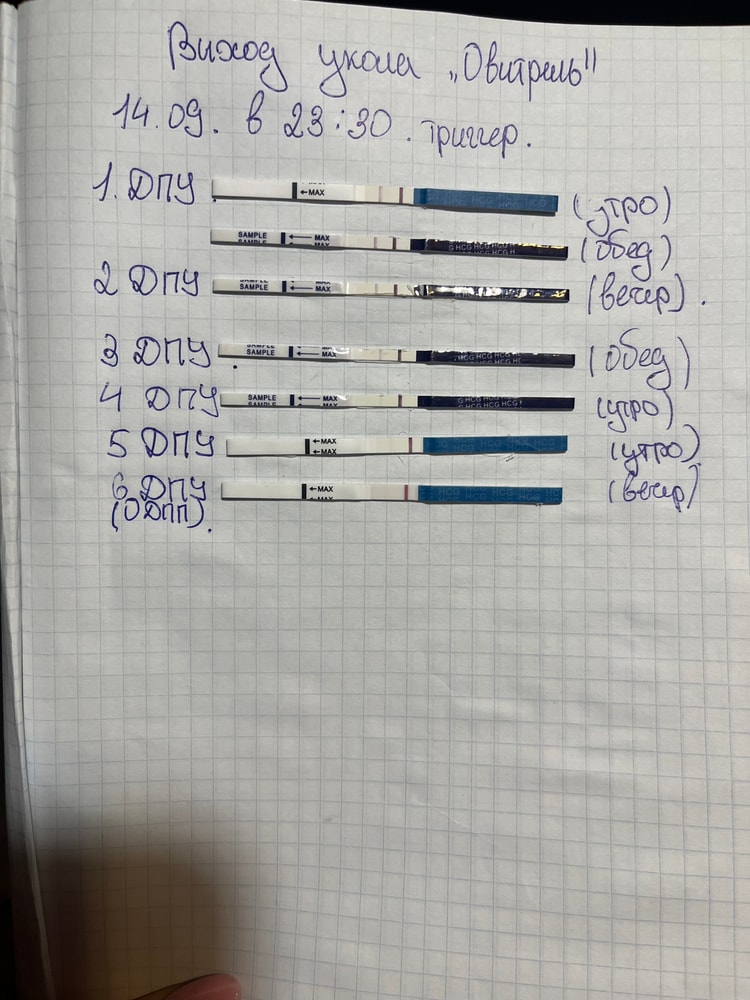 Виход укола „Овитрель"
14.09. в 23:30. триггер.
1. ДПУ. ←MAX (утро)
SAMPLE ← MAX HCG HCG HCG (обед)
2 ДПУ SAMPLE ← MAX (вечер).
3 ДПУ. SAMPLE ← MAX HCG HCG HCG (обед)
4 ДПУ SAMPLE ← MAX G HCG HCG HCG (утро)
5 ДПУ ←MAX (утро)
←MAX
6 ДПУ ←MAX HCG HCG HCG (вечер)
(0 ДПП).